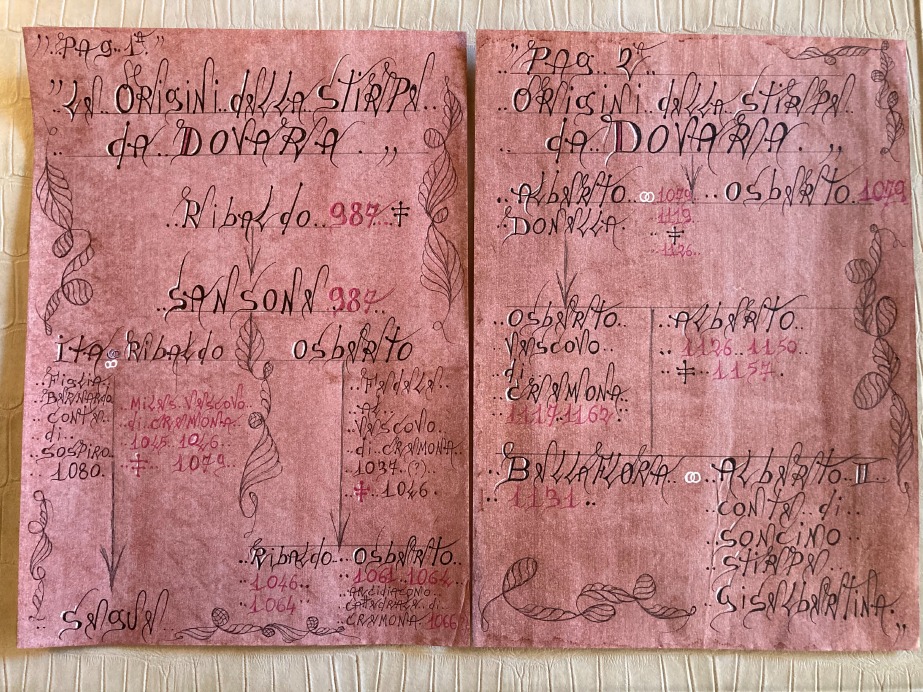 "..PAG..1ª.."
"LE ORIGINI della STIRPE..
.. da.. DOVARIA . ,,
..Ribaldo..987..‡
..SANSONE 987..
ita ⚭ Ribaldo
..Figlia..
BERNARDO
..CONTE..
..di..
..SOSPIRO
1080..
Miles Vescovo..
..di CREMONA
1045..1046..
..‡.. 1079..
Osberto
..Fedele..
..Al..
..Vescovo
..di CREMONA
1037..(?)..
..‡..1046..
..Ribaldo..
1046..
..1064
Osberto..
1061..1064
ARCIDIACONO..
CATTEDRALE..di
CREMONA..1066
..Segue
.." PAG.. 2ª..
..ORIGINI..della..STIRPE..
..da DOVARIA..,,
..Alberto.. ⚭ 1079.. ..Osberto 1079
..DONELLA.. 1119
..‡..
..1126..
..Osberto..
Vescovo..
di
CREMONA..
1117..1162..
..Alberto..
..1126..1150..
..‡..1157..
..BELLAFLORA.. ⚭ ..Alberto II..
..1131 ..
..CONTE..di..
..SONCINO
..STIRPE..
..GISELBERTINA..,,